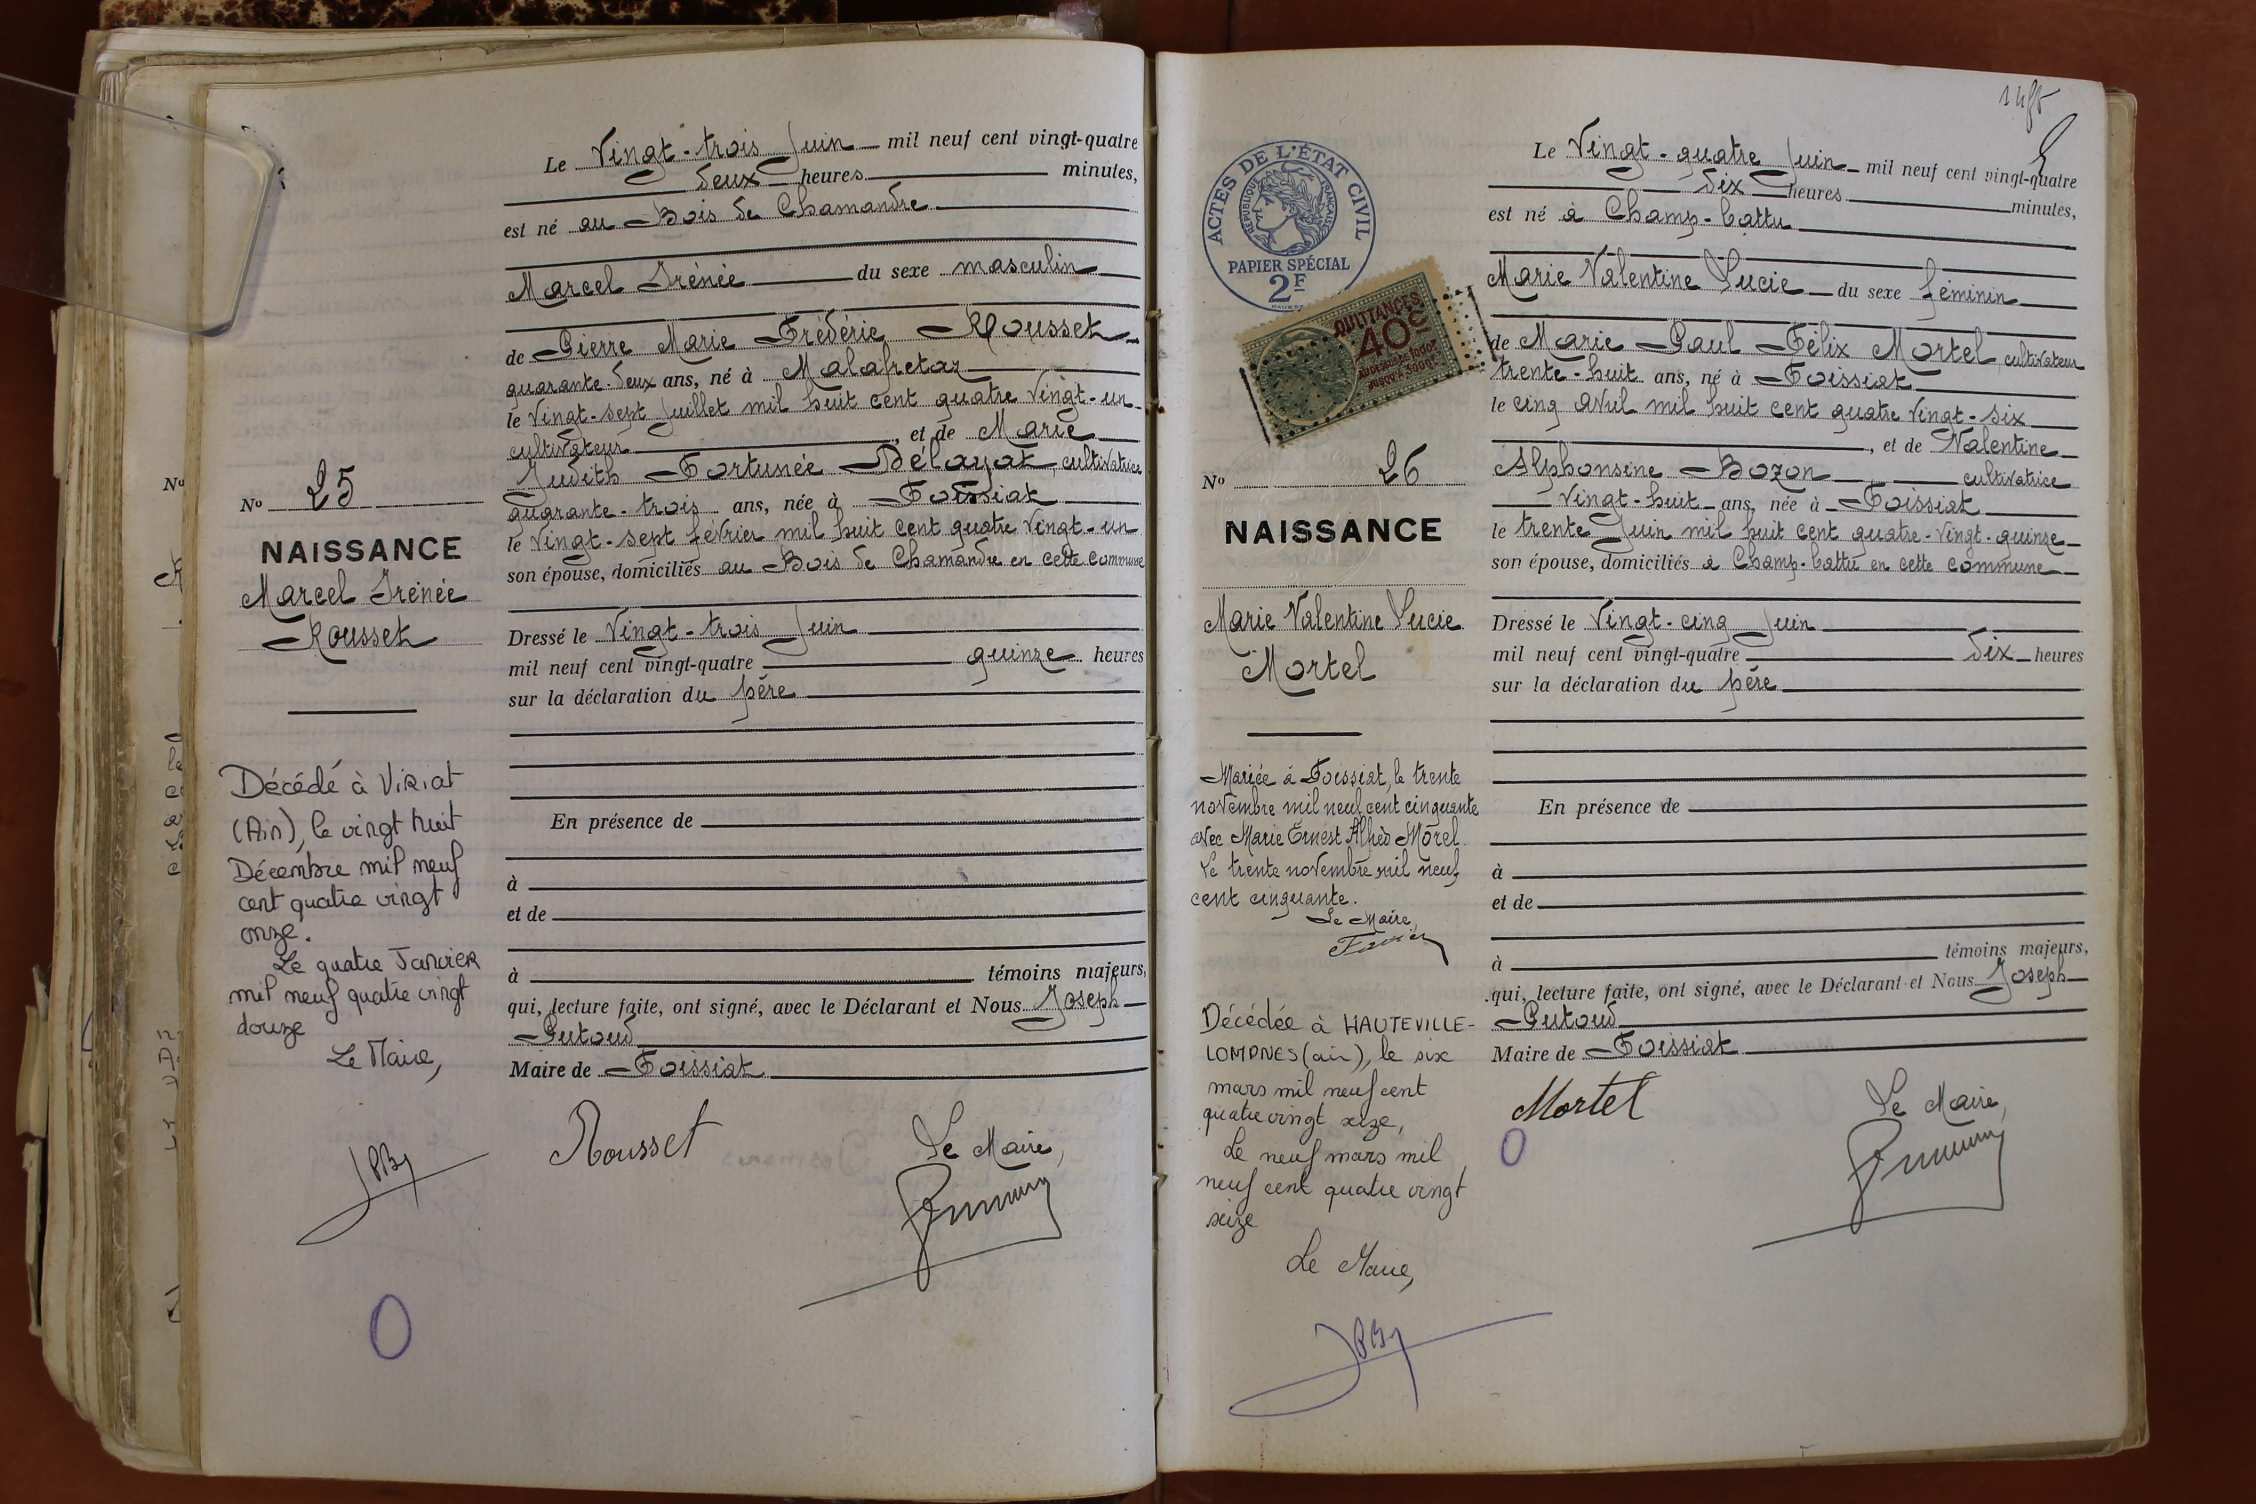 Le Vingt-trois Juin mil neuf cent vingt-quatre
deux heures minutes,
est né au Bois de Chamandre
Marcel Irénée du sexe masculin
de Pierre Marie Frédéric Rousset
quarante-deux ans, né à Malafretaz
le vingt-sept Juillet mil huit cent quatre vingt-un
cultivateur, et de Marie
Judith Fortunée Délayat, cultivatrice
quarante-trois ans, née à Foissiat
le vingt-sept février mil huit cent quatre vingt-un
son épouse, domiciliés au Bois de Chamandre en cette commune
Dressé le Vingt-trois Juin
mil neuf cent vingt-quatre quinze heures
sur la déclaration du père
En présence de
à
et de
à témoins majeurs,
qui, lecture faite, ont signé, avec le Déclarant et Nous Joseph
Putoud
Maire de Foissiat
Rousset
Le Maire,
No 25
NAISSANCE
Marcel Irénée
Rousset
Décédé à VIRIAT
(Ain), le vingt huit
Décembre mil neuf
cent quatre vingt
onze.
Le quatre JANVIER
mil neuf quatre vingt
douze
Le Maire,
No
1485
Le Vingt-quatre Juin mil neuf cent vingt-quatre
dix heures minutes,
est né à Champ-battu
Marie Valentine Lucie du sexe féminin
de Marie Paul Félix Mortel cultivateur
trente-huit ans, né à Foissiat
le cinq avril mil huit cent quatre vingt-six
, et de Valentine
Alphonsine Bozon cultivatrice
vingt-huit ans, née à Foissiat
le trente Juin mil huit cent quatre-vingt-quinze
son épouse, domiciliés à Champ-battu en cette commune
Dressé le Vingt-cinq Juin
mil neuf cent vingt-quatre dix heures
sur la déclaration du père
En présence de
à
et de
à témoins majeurs,
qui, lecture faite, ont signé, avec le Déclarant et Nous Joseph
Putoud
Maire de Foissiat
Mortel
Le Maire,
ACTES DE L'ÉTAT CIVIL
RÉPUBLIQUE FRANÇAISE
PAPIER SPÉCIAL
2F
QUITTANCES
40c
AU DESSUS DE 1000F
JUSQU'À 3000F
No 26
NAISSANCE
Marie Valentine Lucie
Mortel
Mariée à Foissiat, le trente
novembre mil neuf cent cinquante
avec Marie Ernest Alfred Morel.
Le trente novembre mil neuf
cent cinquante.
Le Maire,
Décédée à HAUTEVILLE-
LOMPNES (ain), le six
mars mil neuf cent
quatre vingt seize,
Le neuf mars mil
neuf cent quatre vingt
seize
Le Maire,